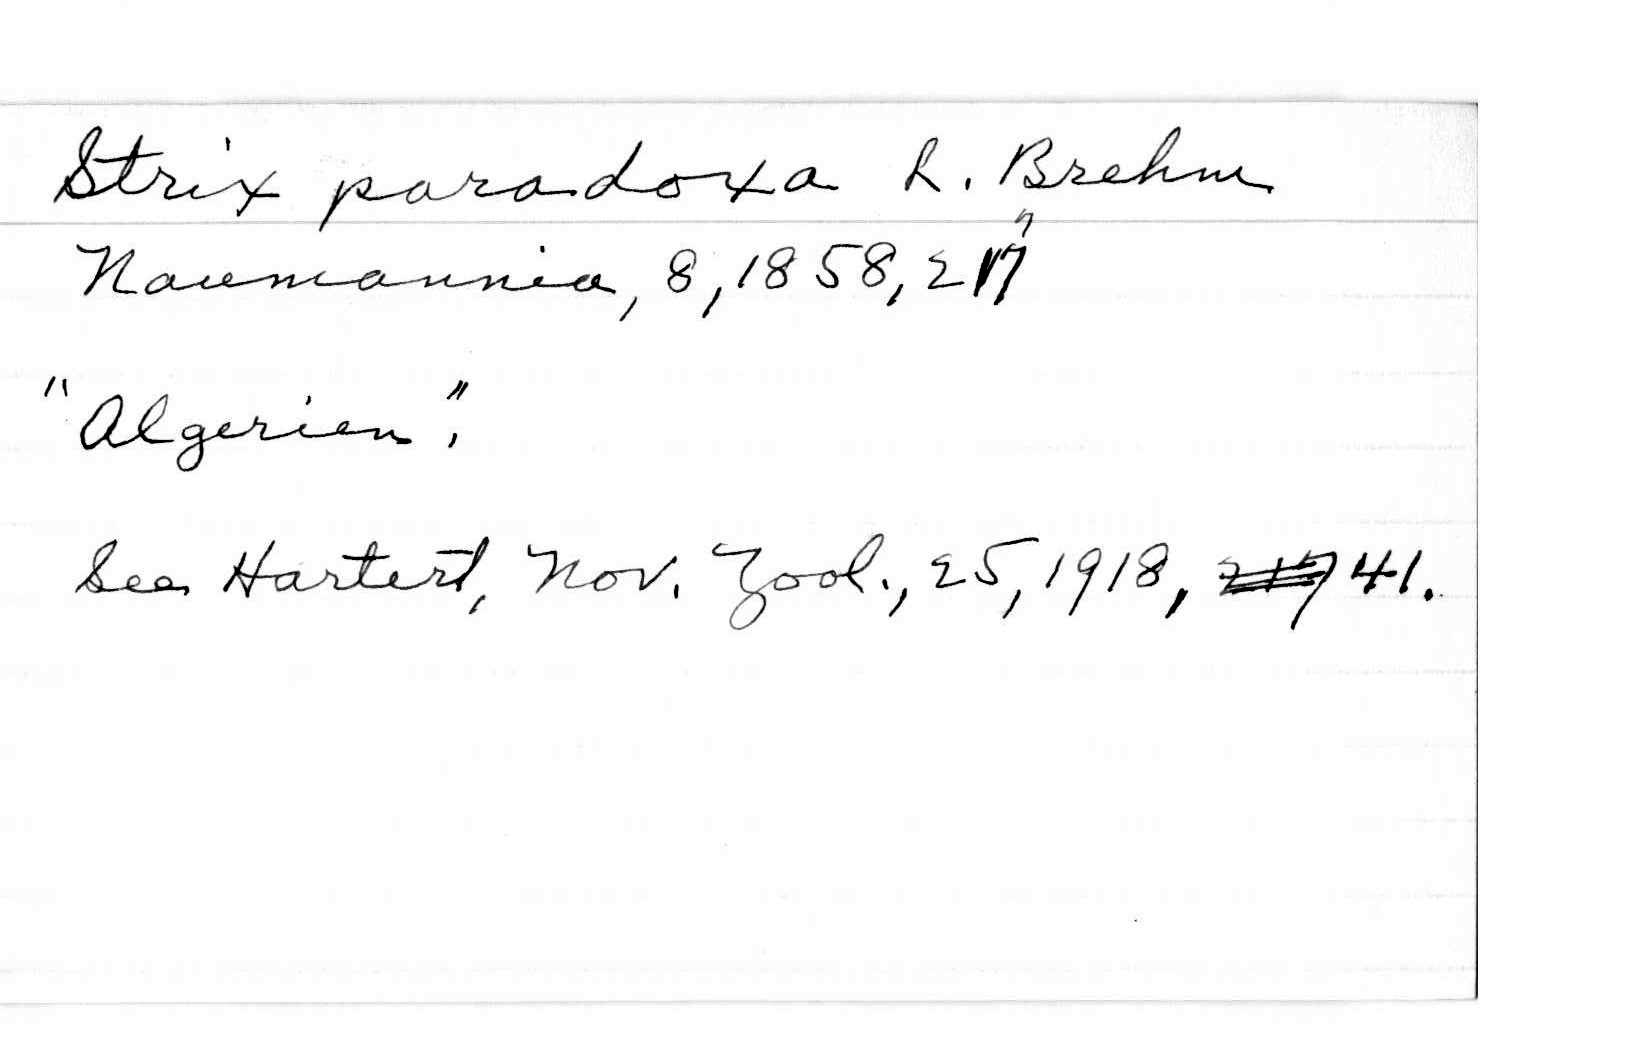 Strix paradoxa L. Brehm
Naumannia, 8, 1858, 217
"Algerien".
See Hartert, Nov. Zool., 25, 1918, 41.